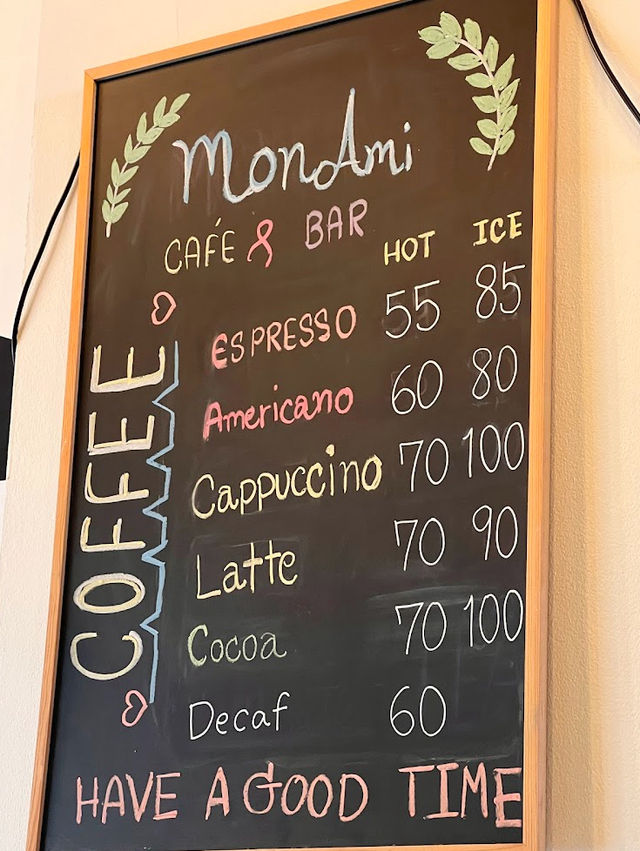 MonAmi
CAFÉ & BAR
HOT ICE
COFFEE
ESPRESSO 55 85
Americano 60 80
Cappuccino 70 100
Latte 70 90
Cocoa 70 100
Decaf 60
HAVE A GOOD TIME